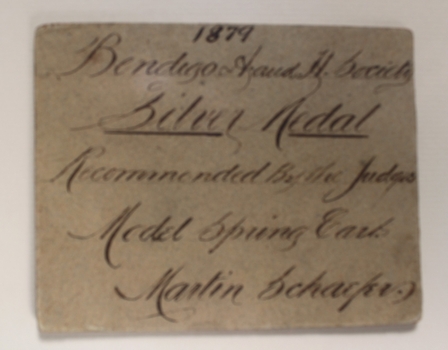 1879
Bendigo A and H. Society
Silver Medal
Recommended By the Judges
Model Spring Cart
Martin Schaefer